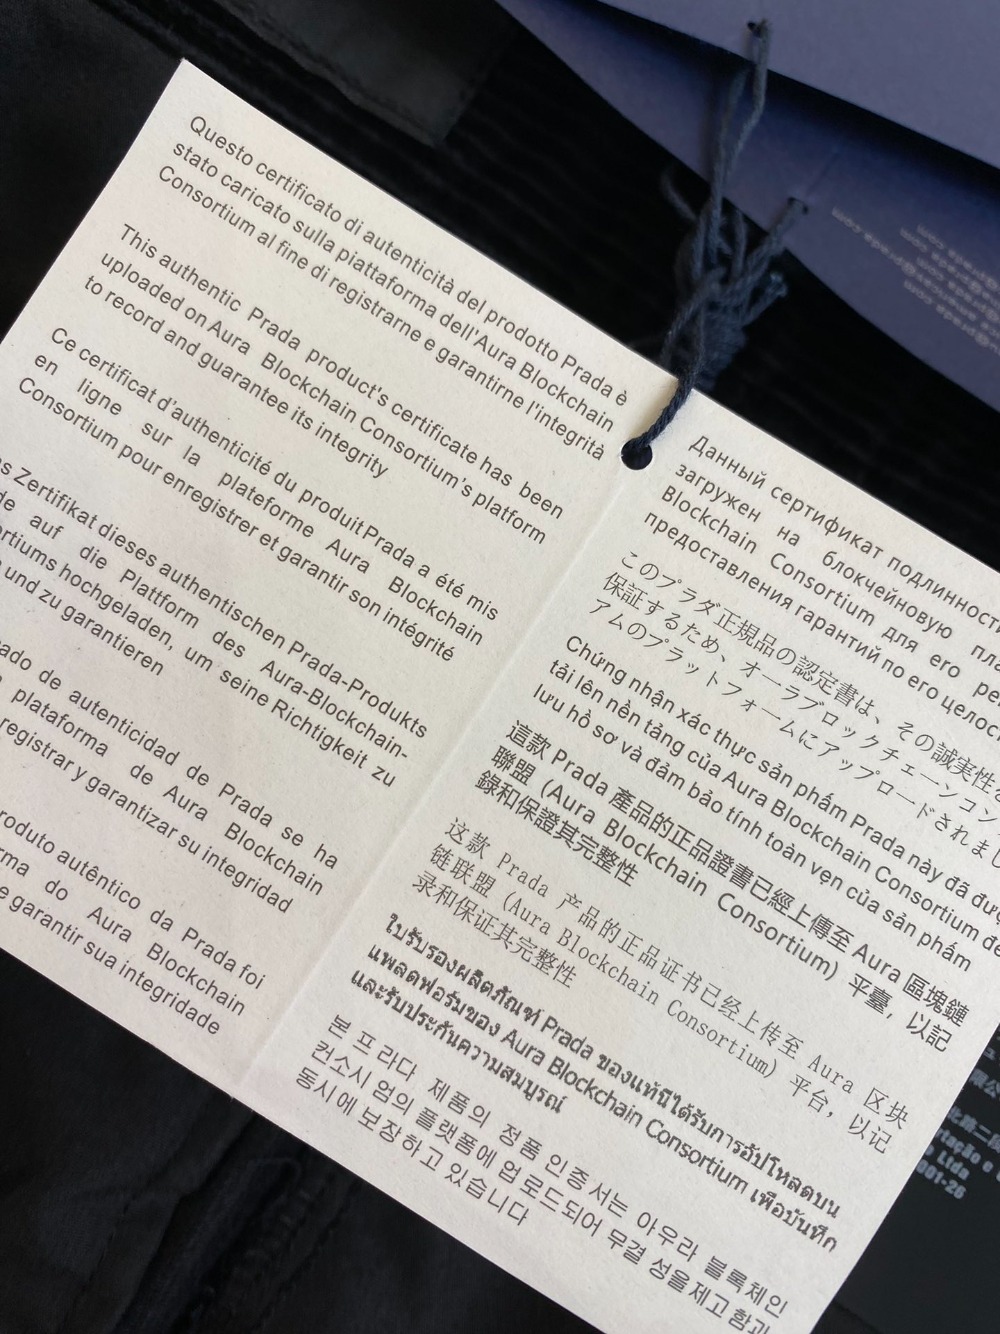 Questo certificato di autenticità del prodotto Prada è
stato caricato sulla piattaforma dell'Aura Blockchain
Consortium al fine di registrarne e garantirne l'integrità
This authentic Prada product's certificate has been
uploaded on Aura Blockchain Consortium's platform
to record and guarantee its integrity
Ce certificat d'authenticité du produit Prada a été mis
en ligne sur la plateforme Aura Blockchain
Consortium pour enregistrer et garantir son intégrité
Zertifikat dieses authentischen Prada-Produkts
auf die Plattform des Aura-Blockchain-
hochgeladen, um seine Richtigkeit zu
und zu garantieren
de autenticidad de Prada se ha
plataforma de Aura Blockchain
registrar y garantizar su integridad
autêntico da Prada foi
do Aura Blockchain
garantir sua integridade
Данный сертификат подлинност
загружен на блокчейновую пла
Blockchain Consortium для его ре
предоставления гарантий по его целост
このプラダ正規品の認定書は、その誠実性を
保証するため、オーラブロックチェーンコン
アムのプラットフォームにアップロードされまし
Chứng nhận xác thực sản phẩm Prada này đã đượ
tải lên nền tảng của Aura Blockchain Consortium để
lưu hồ sơ và đảm bảo tính toàn vẹn của sản phẩm
這款 Prada 產品的正品證書已經上傳至 Aura 區塊鏈
聯盟 (Aura Blockchain Consortium) 平臺，以記
錄和保證其完整性
这款 Prada 产品的正品证书已经上传至 Aura 区块
链联盟 (Aura Blockchain Consortium) 平台，以记
录和保证其完整性
ใบรับรองผลิตภัณฑ์ Prada ของแท้นี้ได้รับการอัปโหลดบน
แพลตฟอร์มของ Aura Blockchain Consortium เพื่อบันทึก
และรับประกันความสมบูรณ์
본 프라다 제품의 정품 인증서는 아우라 블록체인
컨소시엄의 플랫폼에 업로드되어 무결성을제고함과
동시에 보장하고 있습니다
Ltda
001-26